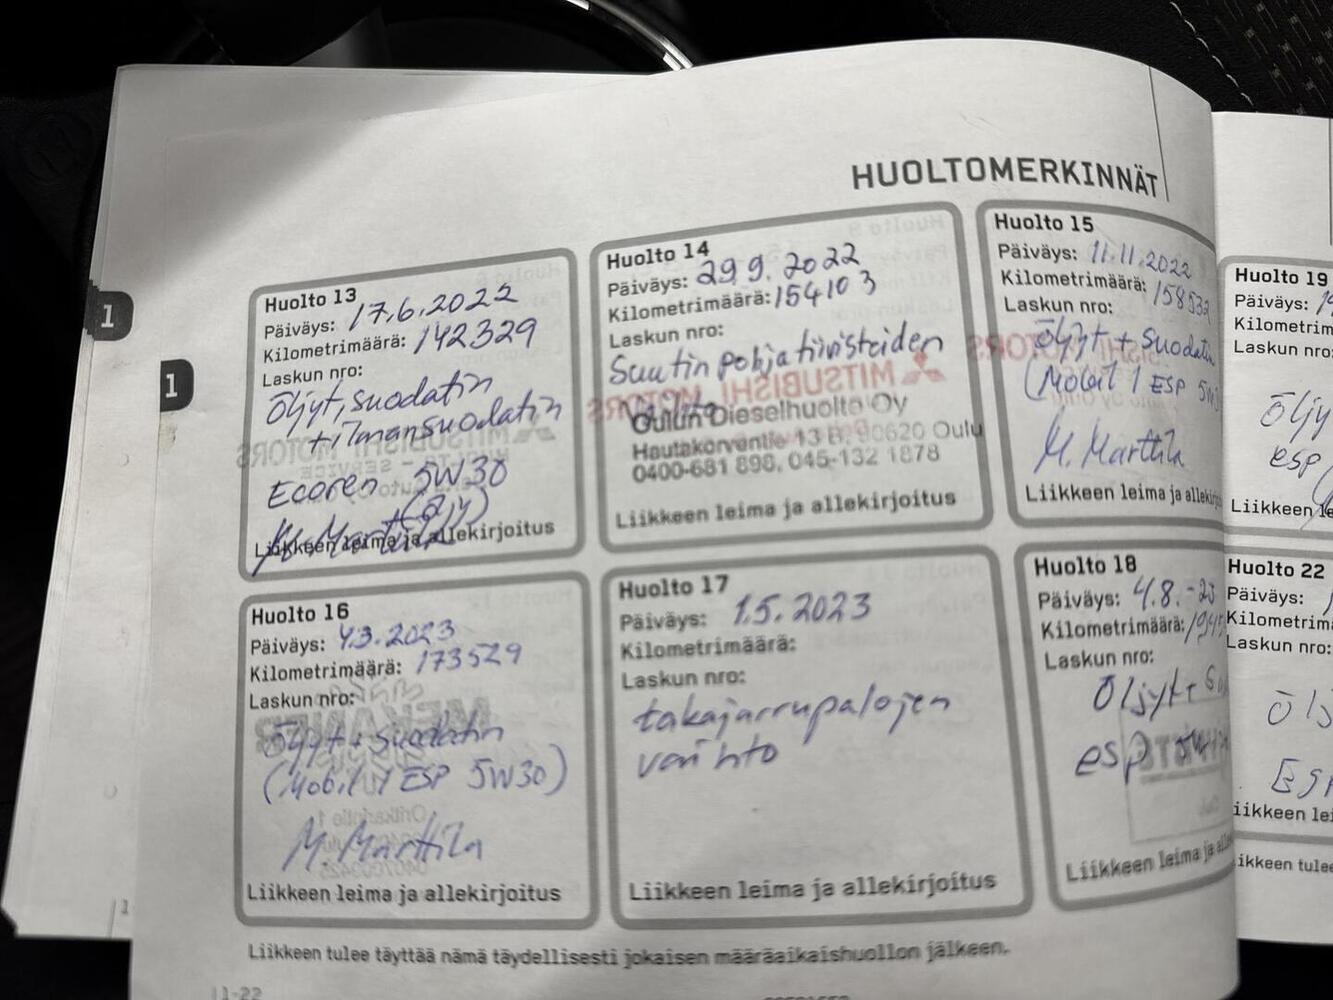 HUOLTOMERKINNÄT
1
1
Huolto 13
Päiväys: 17.6.2022
Kilometrimäärä: 142329
Laskun nro:
Öljyt, suodatin
+ ilmansuodatin
Ecoren 5W30
Liikkeen leima ja allekirjoitus
Huolto 14
Päiväys: 29.9.2022
Kilometrimäärä: 154103
Laskun nro:
Suutin pohjatiivisteiden
Oulun Dieselhuolto Oy
Hautakorventie 13 B, 90620 Oulu
0400-681 898, 045-132 1878
Liikkeen leima ja allekirjoitus
Huolto 15
Päiväys: 11.11.2022
Kilometrimäärä: 158532
Laskun nro:
Öljyt + Suodatin
(Mobil 1 ESP 5W
M. Marttila
Liikkeen leima ja allekirj
Huolto 16
Päiväys: 4.3.2023
Kilometrimäärä: 173529
Laskun nro:
Öljyt + Suodatin
(Mobil 1 ESP 5W30)
M. Marttila
Liikkeen leima ja allekirjoitus
Huolto 17
Päiväys: 1.5.2023
Kilometrimäärä:
Laskun nro:
takajarrupalojen
vaihto
Liikkeen leima ja allekirjoitus
Huolto 18
Päiväys: 4.8.-23
Kilometrimäärä:
Laskun nro:
Öljyt +
esp
Liikkeen leima ja all
Huolto 19
Päiväys:
Kilometrim
Laskun nro:
Öljy
esp
Liikkeen le
Huolto 22
Päiväys:
Kilometrimä
Laskun nro:
Ölj
Esp
iikkeen lei
ikkeen tulee
Liikkeen tulee täyttää nämä täydellisesti jokaisen määräaikaishuollon jälkeen.
11-22